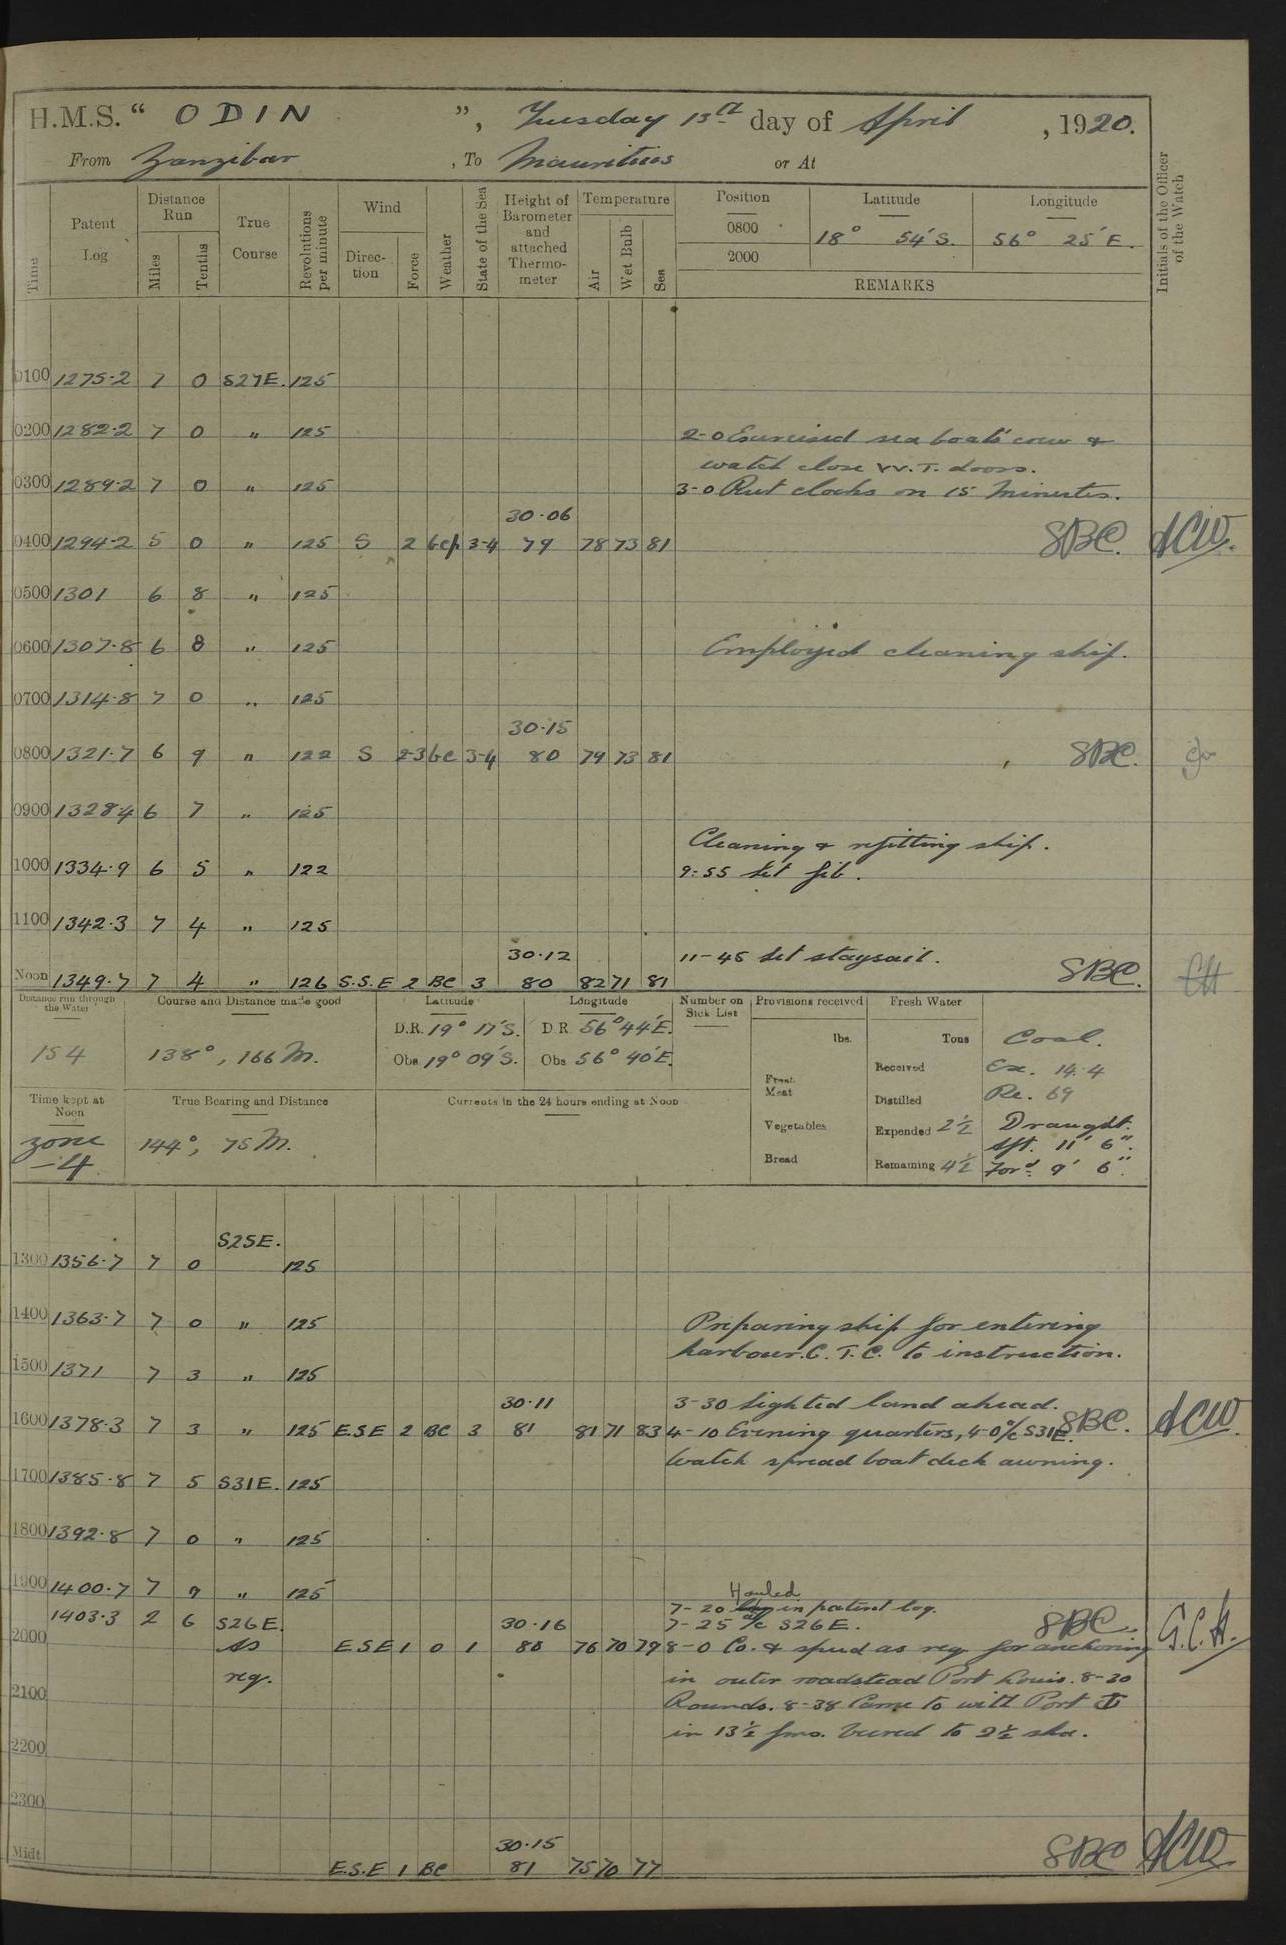 H.M.S. " ODIN ", Tuesday 13th day of April, 1920.
From Zanzibar, To Mauritius or At
Time
Patent Log
Distance Run
Miles
Tenths
True Course
Revolutions per minute
Wind
Direction
Force
Weather
State of the Sea
Height of Barometer and attached Thermometer
Temperature
Air
Wet Bulb
Sea
Position Latitude Longitude
0800 18° 54' S. 56° 25' E.
2000
REMARKS
Initials of the Officer of the Watch
0100 1275.2 7 0 S27E. 125
0200 1282.2 7 0 " 125 2-0 Exercised sea boats crew &
watch close W.T. doors.
0300 1289.2 7 0 " 125 3-0 Put clocks on 15 Minutes.
30.06
0400 1294.2 5 0 " 125 S 2 bcp 3-4 79 78 73 81 SBC. ACW.
0500 1301 6 8 " 125
0600 1307.8 6 8 " 125 Employed cleaning ship.
0700 1314.8 7 0 " 125
30.15
0800 1321.7 6 9 " 122 S 2-3 bc 3-4 80 79 73 81 SBC.
0900 1328.4 6 7 " 125
Cleaning & refitting ship.
1000 1334.9 6 5 " 122 9:55 Set jib.
1100 1342.3 7 4 " 125
30.12 11-45 Set staysail.
Noon 1349.7 7 4 " 126 S.S.E 2 BC 3 80 82 71 81 SBC.
Distance run through the Water
154
Course and Distance made good
138°, 166 M.
Latitude
D.R. 19° 17' S.
Obs 19° 09' S.
Longitude
D.R 56° 44' E.
Obs 56° 40' E.
Number on Sick List
Provisions received
lbs.
Fresh Meat
Vegetables
Bread
Fresh Water
Tons
Received
Distilled
Expended 2½
Remaining 4½
Coal.
Ex. 14.4
Re. 69
Draught.
Aft. 11' 6".
For'd. 9' 6".
Time kept at Noon
zone -4
True Bearing and Distance
144°, 75 M.
Currents in the 24 hours ending at Noon
S25E.
1300 1356.7 7 0 125
1400 1363.7 7 0 " 125 Preparing ship for entering
harbour. C.T.C. to instruction.
1500 1371 7 3 " 125
30.11 3-30 Sighted land ahead.
1600 1378.3 7 3 " 125 E.S.E 2 BC 3 81 81 71 83 4-10 Evening quarters, 4-0 a/c S31E. SBC. ACW.
Watch spread boat deck awning.
1700 1385.8 7 5 S31E. 125
1800 1392.8 7 0 " 125
1900 1400.7 7 9 " 125
Hauled
7-20 in patent log.
1403.3 2 6 S26E. 30.16 7-25 a/c S26E. SBC. G.C.H.
2000 As E.S.E 1 0 1 80 76 70 79 8-0 Co. & speed as req for anchoring
req. in outer roadstead Port Louis. 8-30
2100 Rounds. 8-38 Came to with Port ⚓
in 13½ fms. Veered to 2½ shs.
2200
2300
30.15
Midt E.S.E 1 BC 81 75 70 77 SBC ACW.